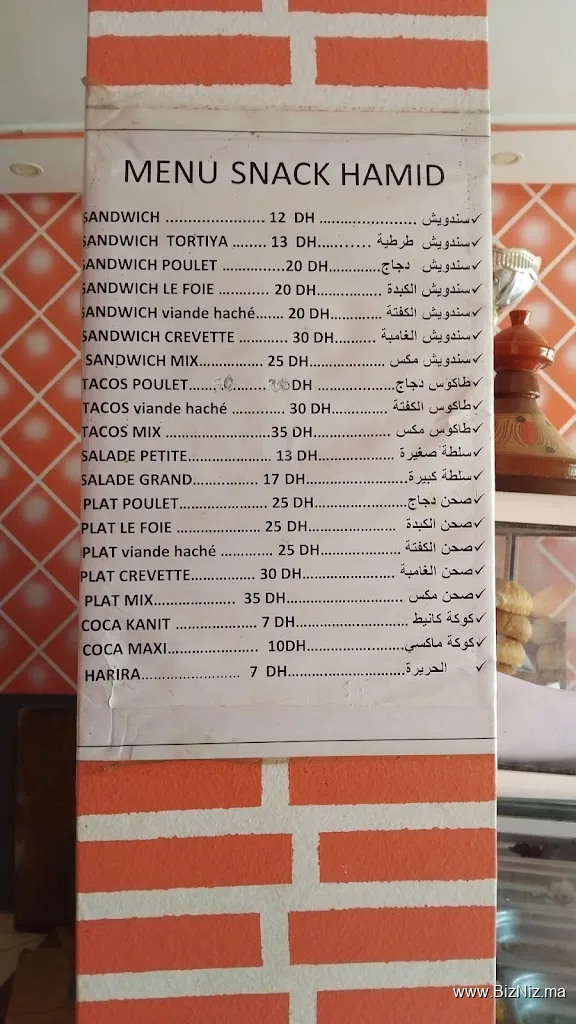 MENU SNACK HAMID
SANDWICH ...................... 12 DH ...................... سندويش✓
SANDWICH TORTIYA ........ 13 DH............ سندويش طرطية✓
SANDWICH POULET ..............20 DH............سندويش دجاج✓
SANDWICH LE FOIE ............ 20 DH............... سندويش الكبدة✓
SANDWICH viande haché....... 20 DH............... سندويش الكفتة✓
SANDWICH CREVETTE ............ 30 DH.......... سندويش الغامبة✓
SANDWICH MIX............... 25 DH.................. سندويش مكس✓
TACOS POULET................ DH.................. طاكوس دجاج✓
TACOS viande haché ............ 30 DH.............. طاكوس الكفتة✓
TACOS MIX .......................35 DH.................. طاكوس مكس✓
SALADE PETITE................... 13 DH................... سلطة صغيرة✓
SALADE GRAND............... 17 DH......................سلطة كبيرة✓
PLAT POULET.................... 25 DH....................صحن دجاج✓
PLAT LE FOIE .................... 25 DH.................... صحن الكبدة✓
PLAT viande haché .................. 25 DH.................. صحن الكفتة✓
PLAT CREVETTE............... 30 DH.................... صحن الغامبة✓
PLAT MIX.................. 35 DH......................... صحن مكس✓
COCA KANIT .................. 7 DH......................... كوكة كانيط✓
COCA MAXI.................... 10DH.........................كوكة ماكسي✓
HARIRA...................... 7 DH..........................الحريرة ✓
www.BizNiz.ma